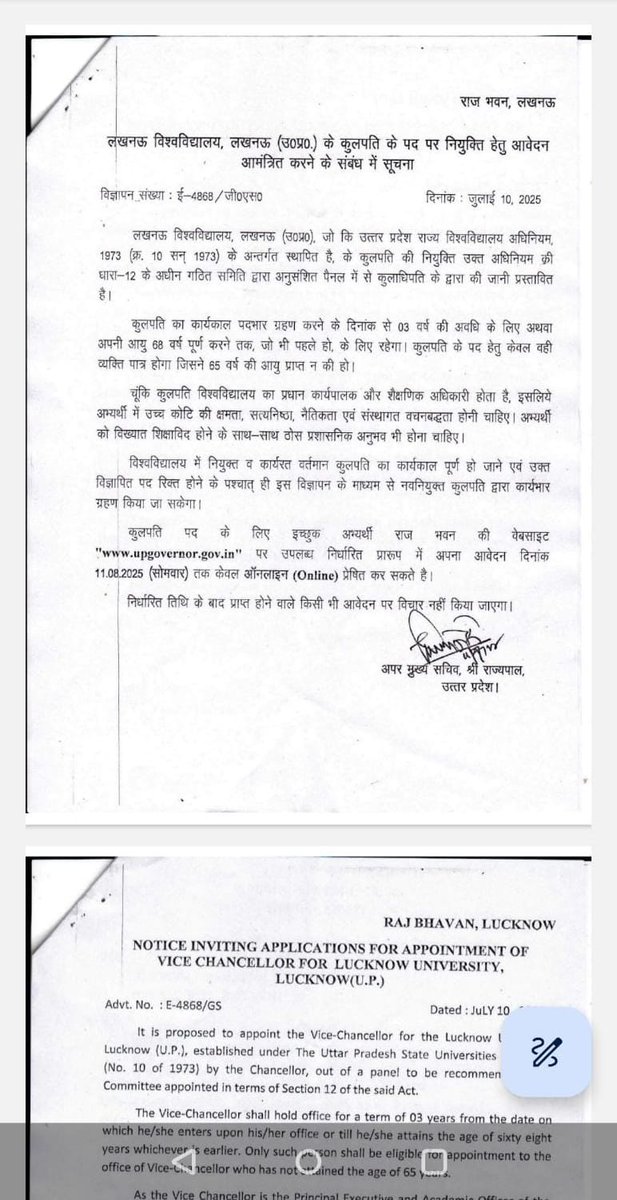 राज भवन, लखनऊ
लखनऊ विश्वविद्यालय, लखनऊ (उ0प्र0.) के कुलपति के पद पर नियुक्ति हेतु आवेदन
आमंत्रित करने के संबंध में सूचना
विज्ञापन संख्या : ई-4868/जी0एस0 दिनांक : जुलाई 10, 2025
लखनऊ विश्वविद्यालय, लखनऊ (उ0प्र0), जो कि उत्तर प्रदेश राज्य विश्वविद्यालय अधिनियम,
1973 (क्र. 10 सन् 1973) के अन्तर्गत स्थापित है, के कुलपति की नियुक्ति उक्त अधिनियम की
धारा-12 के अधीन गठित समिति द्वारा अनुसंशित पैनल में से कुलाधिपति के द्वारा की जानी प्रस्तावित
है।
कुलपति का कार्यकाल पदभार ग्रहण करने के दिनांक से 03 वर्ष की अवधि के लिए अथवा
अपनी आयु 68 वर्ष पूर्ण करने तक, जो भी पहले हो, के लिए रहेगा। कुलपति के पद हेतु केवल वही
व्यक्ति पात्र होगा जिसने 65 वर्ष की आयु प्राप्त न की हो।
चूंकि कुलपति विश्वविद्यालय का प्रधान कार्यपालक और शैक्षणिक अधिकारी होता है, इसलिये
अभ्यर्थी में उच्च कोटि की क्षमता, सत्यनिष्ठा, नैतिकता एवं संस्थागत वचनबद्धता होनी चाहिए। अभ्यर्थी
को विख्यात शिक्षाविद होने के साथ-साथ ठोस प्रशासनिक अनुभव भी होना चाहिए।
विश्वविद्यालय में नियुक्त व कार्यरत वर्तमान कुलपति का कार्यकाल पूर्ण हो जाने एवं उक्त
विज्ञापित पद रिक्त होने के पश्चात् ही इस विज्ञापन के माध्यम से नवनियुक्त कुलपति द्वारा कार्यभार
ग्रहण किया जा सकेगा।
कुलपति पद के लिए इच्छुक अभ्यर्थी राज भवन की वेबसाइट
"www.upgovernor.gov.in" पर उपलब्ध निर्धारित प्रारूप में अपना आवेदन दिनांक
11.08.2025 (सोमवार) तक केवल ऑनलाइन (Online) प्रेषित कर सकते है।
निर्धारित तिथि के बाद प्राप्त होने वाले किसी भी आवेदन पर विचार नहीं किया जाएगा।
अपर मुख्य सचिव, श्री राज्यपाल,
उत्तर प्रदेश।
RAJ BHAVAN, LUCKNOW
NOTICE INVITING APPLICATIONS FOR APPOINTMENT OF
VICE CHANCELLOR FOR LUCKNOW UNIVERSITY,
LUCKNOW(U.P.)
Advt. No. : E-4868/GS Dated : JuLY 10
It is proposed to appoint the Vice-Chancellor for the Lucknow
Lucknow (U.P.), established under The Uttar Pradesh State Universities
(No. 10 of 1973) by the Chancellor, out of a panel to be
Committee appointed in terms of Section 12 of the said Act.
The Vice-Chancellor shall hold office for a term of 03 years from the date on
which he/she enters upon his/her office or till he/she attains the age of sixty eight
years whichever is earlier. Only such person shall be eligible for appointment to the
office of Vice-Chancellor who has not attained the age of 65 years.
As the Vice Chancellor is the Principal Executive and Academic Officer of the